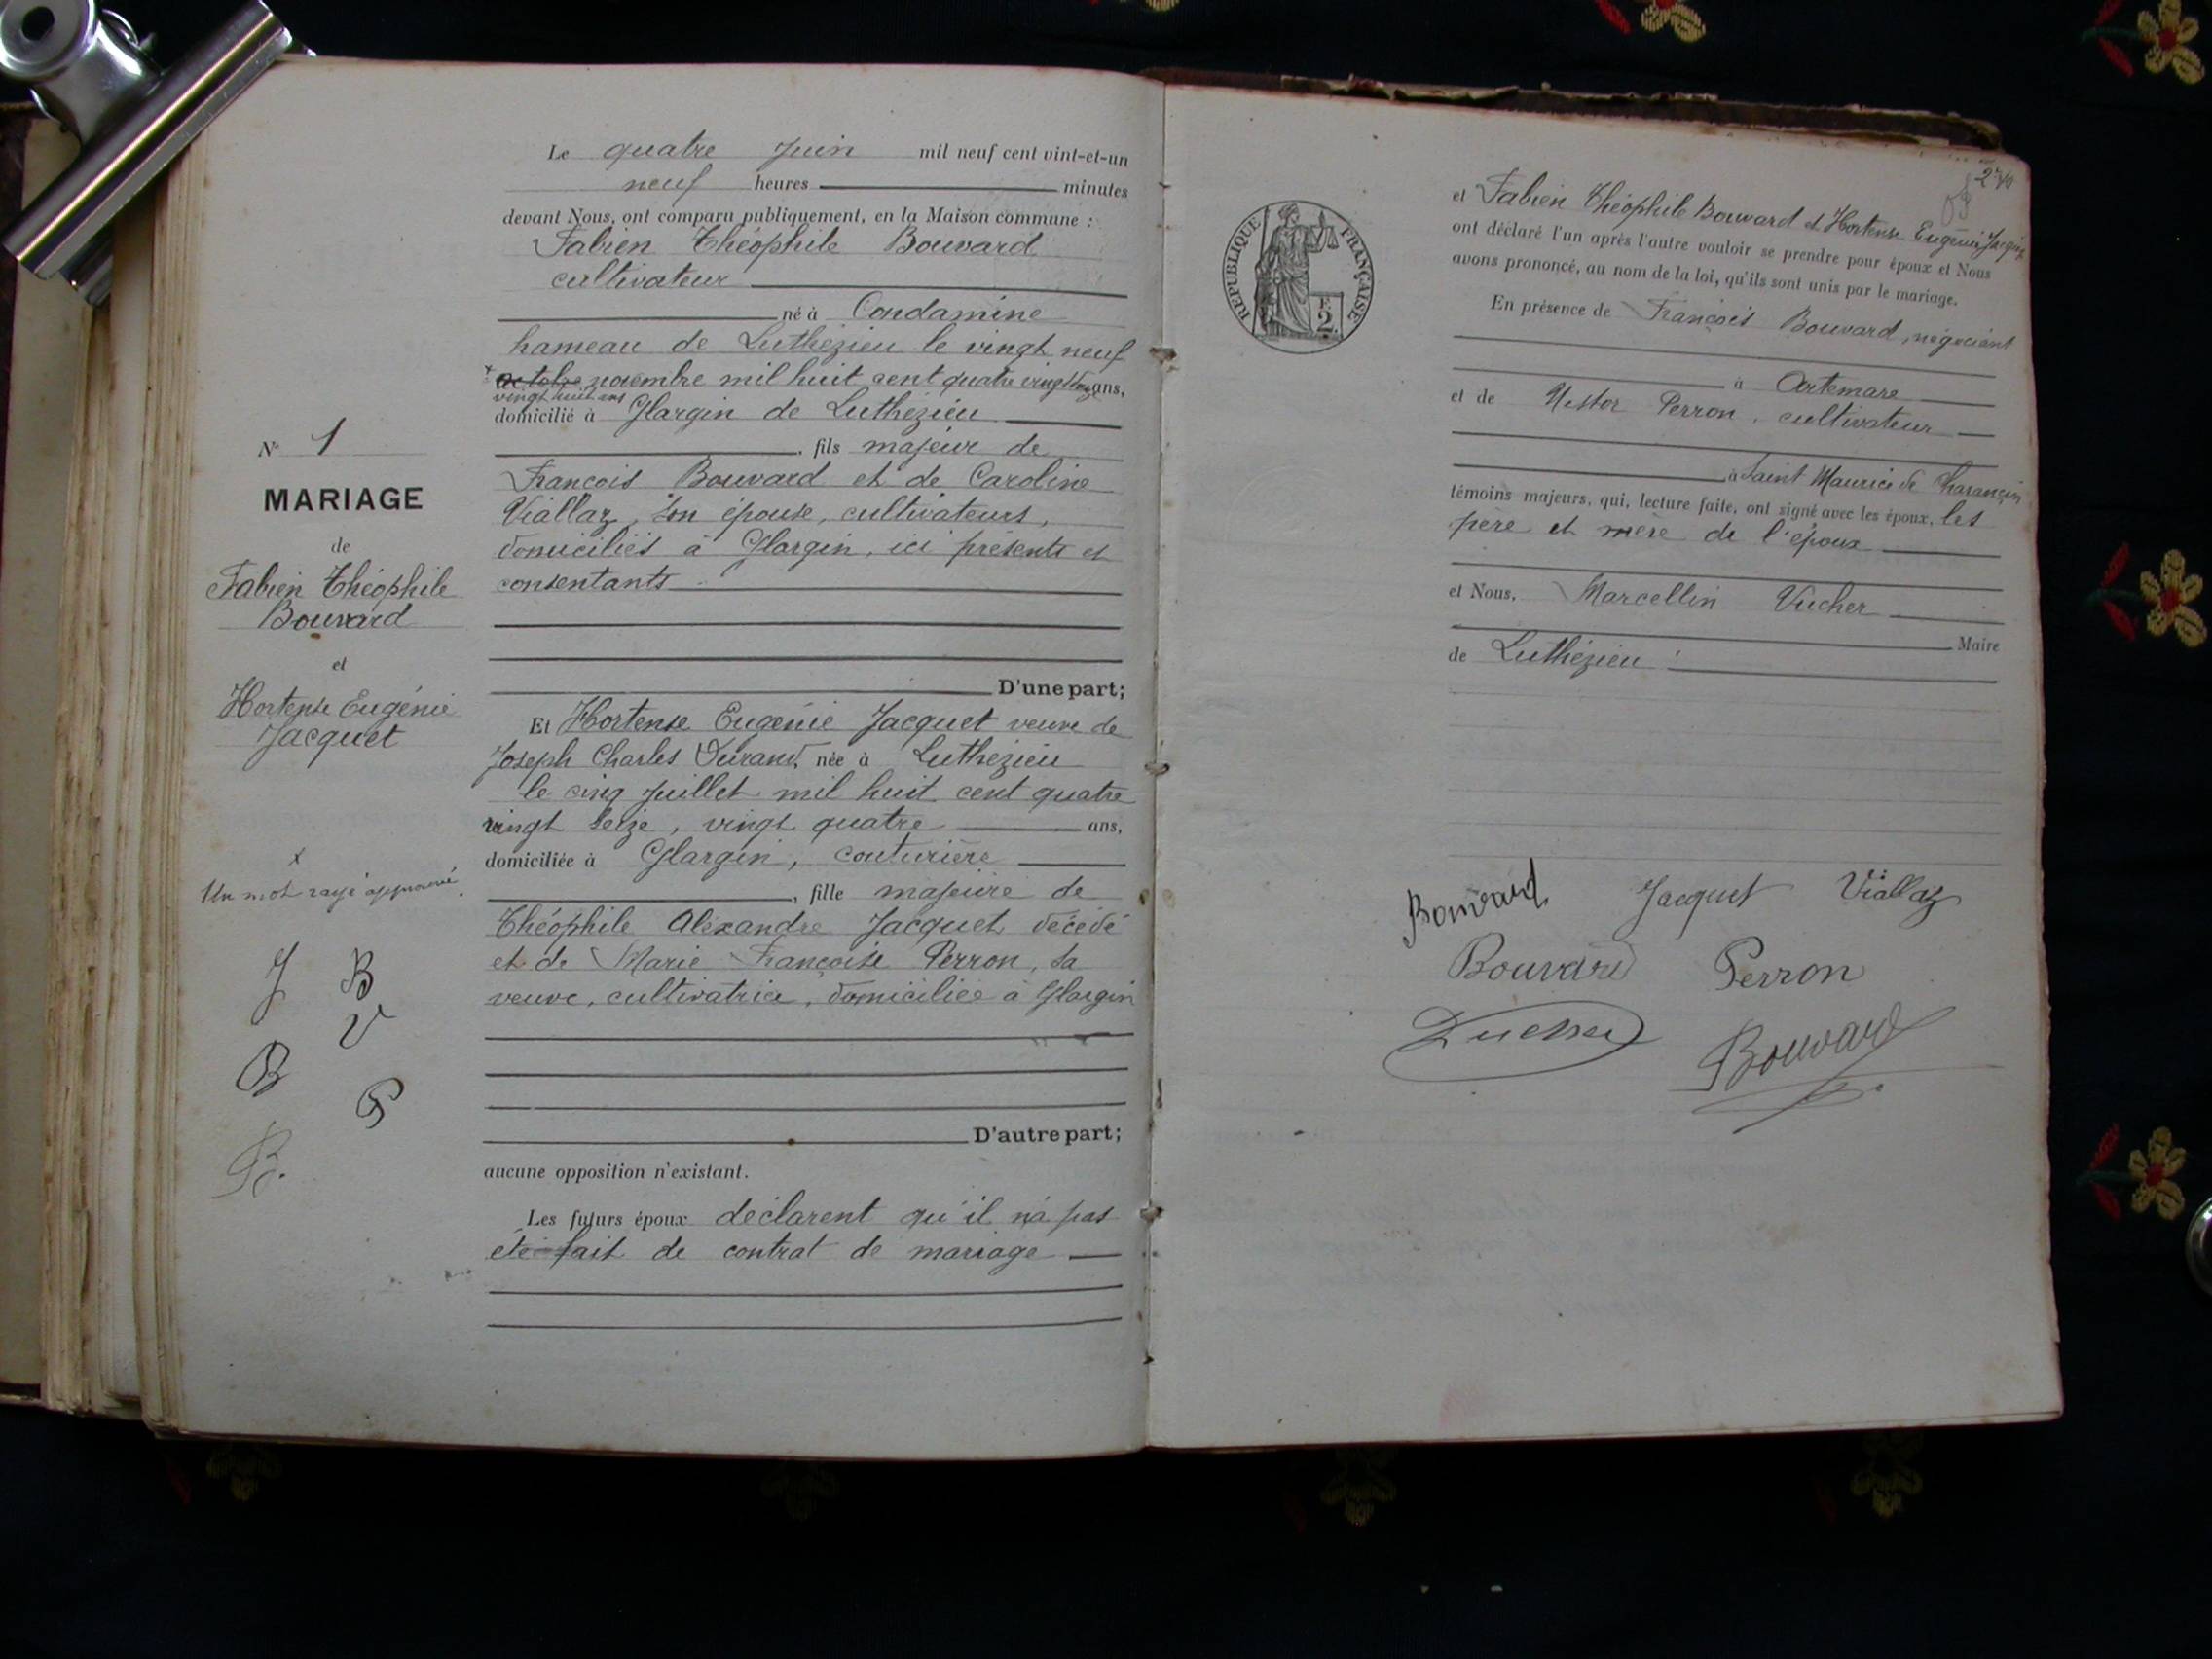 N° 1
MARIAGE
de
Fabien Théophile
Bouvard
et
Hortense Eugénie
Jacquet
x
Un mot rayé approuvé.
J B
V
B
P
B.
Le quatre Juin mil neuf cent vint-et-un
neuf heures minutes
devant Nous, ont comparu publiquement, en la Maison commune :
Fabien Théophile Bouvard
cultivateur
né à Condamine
hameau de Luthézieu le vingt neuf
x octobre novembre mil huit cent quatre vingt douze ans,
vingt huit ans
domicilié à Glargin de Luthézieu
, fils majeur de
François Bouvard et de Caroline
Viallaz, son épouse, cultivateurs,
domiciliés à Glargin, ici présents et
consentants
D'une part;
Et Hortense Eugénie Jacquet veuve de
Joseph Charles Durand, née à Luthézieu
le cinq Juillet mil huit cent quatre
vingt seize, vingt quatre ans,
domiciliée à Glargin, couturière
, fille majeure de
Théophile Alexandre Jacquet décédé
et de Marie Françoise Perron, sa
veuve, cultivatrice, domiciliée à Glargin
D'autre part;
aucune opposition n'existant.
Les futurs époux déclarent qu'il n'a pas
été fait de contrat de mariage
REPUBLIQUE FRANÇAISE
2
et Fabien Théophile Bouvard et Hortense Eugénie Jacquet
ont déclaré l'un après l'autre vouloir se prendre pour époux et Nous
avons prononcé, au nom de la loi, qu'ils sont unis par le mariage.
En présence de François Bouvard, négociant
à Artemare
et de Nestor Perron, cultivateur
à Saint Maurice de Charancin
témoins majeurs, qui, lecture faite, ont signé avec les époux, les
père et mère de l'époux
et Nous, Marcellin Vucher
Maire
de Luthézieu :
Bouvard Jacquet Viallaz
Bouvard Perron
Bouvard